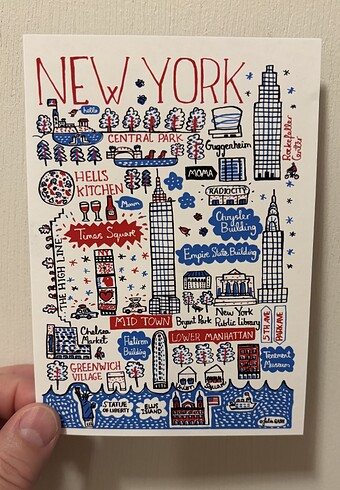 NEW YORK
hello
CENTRAL PARK
Guggenheim
Rockefeller
Center
MOMA
HELLS
KITCHEN
RADIO CITY
Mmm
Chrysler
Building
Times Square
Empire State Building
THE HIGH LINE
NY
MID TOWN
Bryant Park
New York
Public library
5TH AVE
PARK AVE
Chelsea
Market
Flatiron
Building
LOWER MANHATTAN
Tenement
Museum
GREENWICH
VILLAGE
Union Square
STATUE
OF LIBERTY
ELLIS
ISLAND